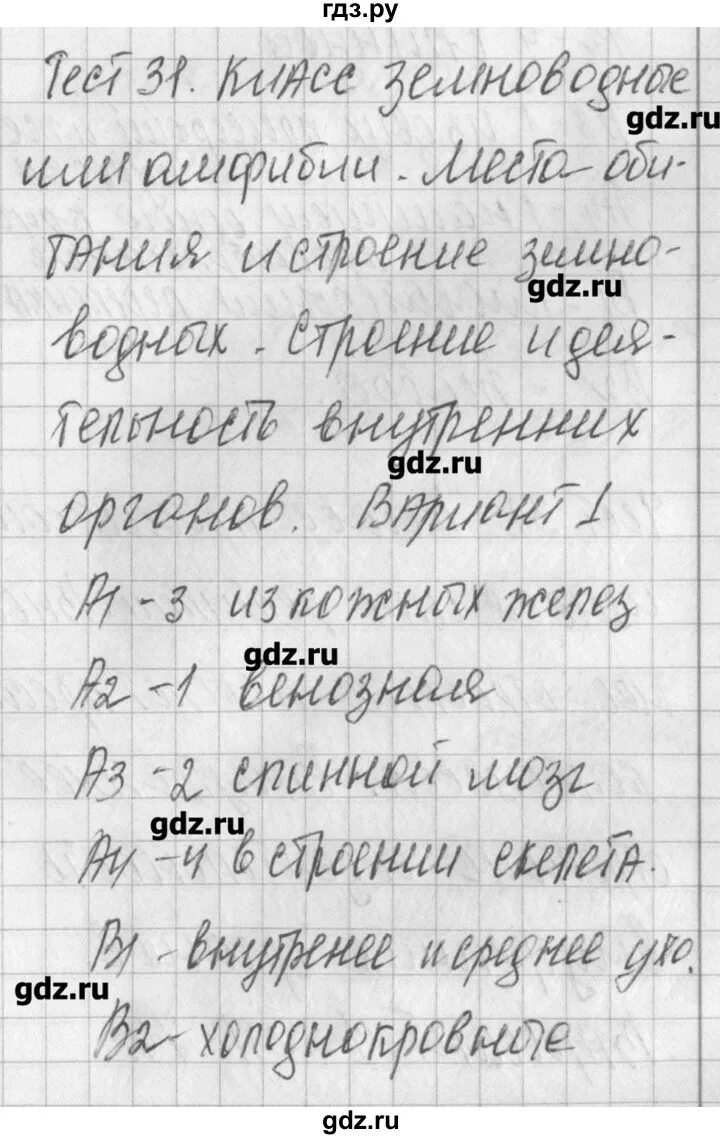 гдз.ру
Тест 31. Класс земноводные
gdz.ru
или амфибии. Места оби-
тания и строение земно-
gdz.ru
водных. Строение и дея-
тельность внутренних
gdz.ru
органов. Вариант 1
А1 - 3 из кожных желез
gdz.ru
А2 - 1 венозная
А3 - 2 спинной мозг
gdz.ru
А4 - 4 в строении скелета.
В1 - внутренее и среднее ухо.
gdz.ru
В2 - холоднокровные
gdz.ru